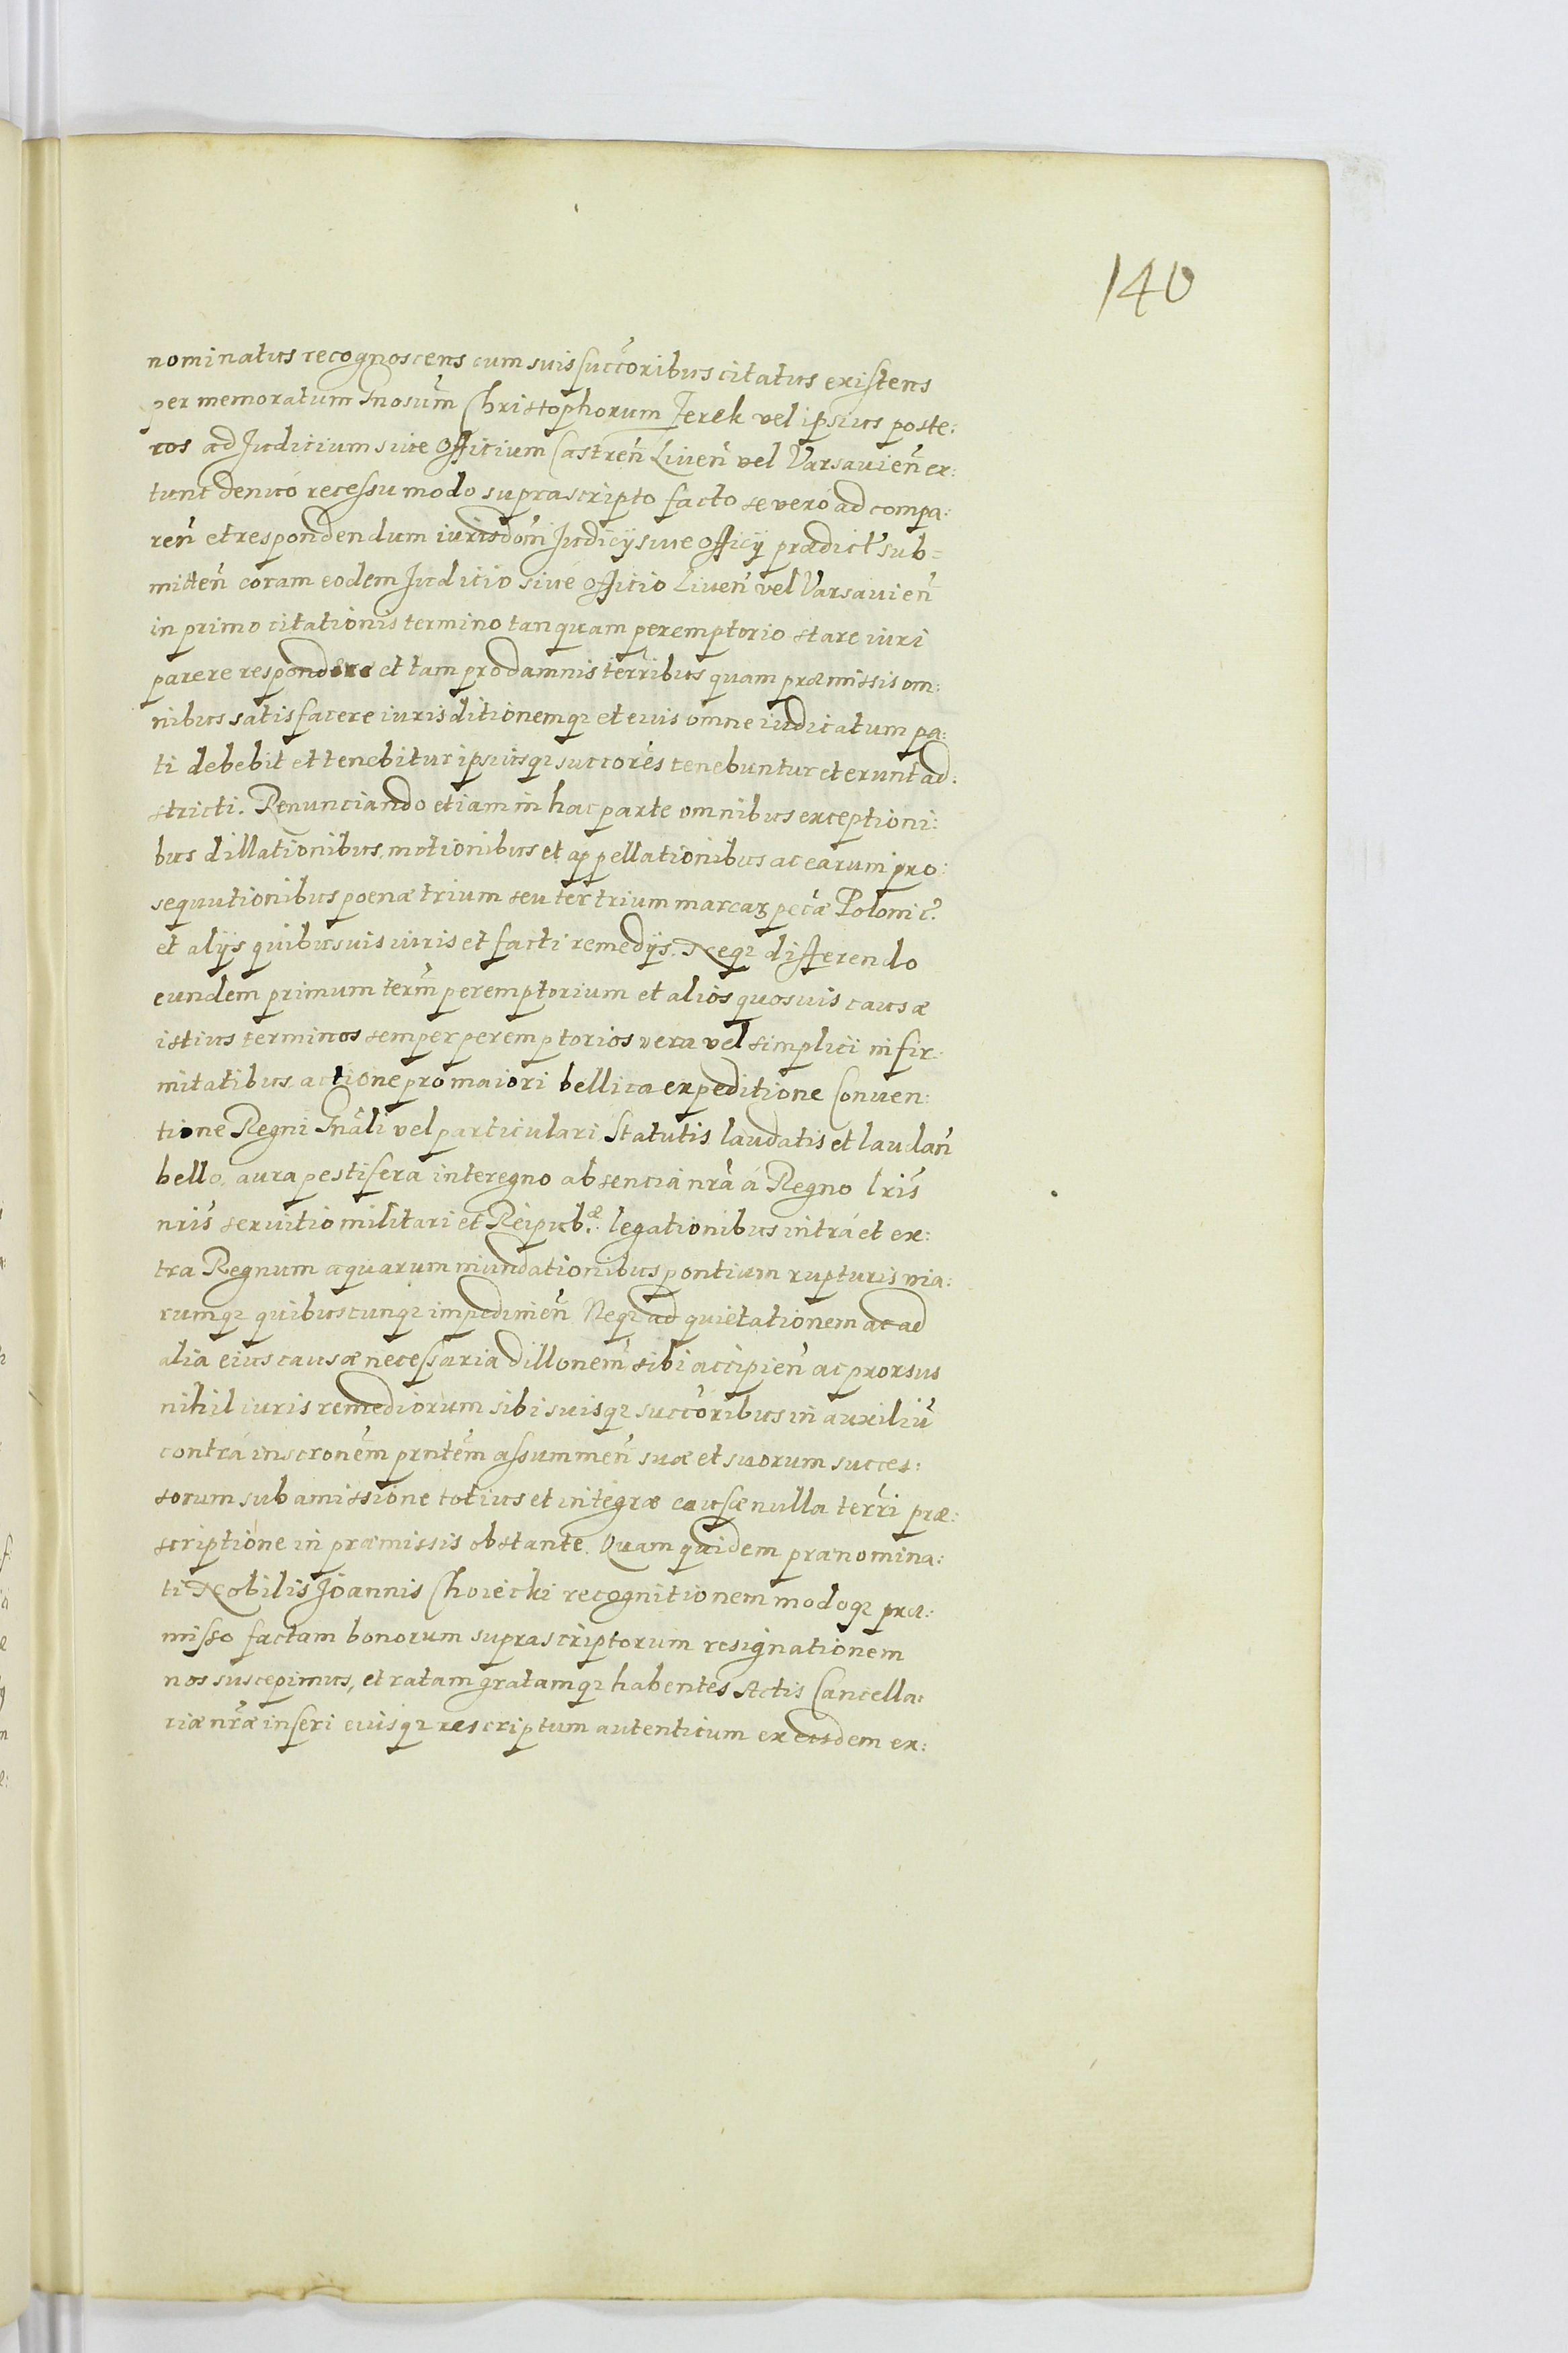 140
nominatus recognoscens cum suis succ̃oribus citatus existens
per memoratum Gnosum̃ Christophorum Jerek vel ipsius poste:
ros ad Judicium siue Officium Castren̄ Liuen̄ vel Varsauien̄ ex:
tunc denuó recessu modo suprascripto facto se veró ad compa:
ren̄ et respondendum iurisdom̃ Judicÿ siue officÿ prædict' sub=
mitten̄ coram eodem Juditio siué officio Liuen̄ vel Varsauien̄
in primo citationis termino tanquam peremptorio stare iuri
parere respondere et tam pro damnis terr̃ibus quam præmissis om:
nibus satisfacere iurisditionemq; et eius omne iudicatum pa:
ti debebit et tenebitur ipsiusq; succorẽs tenebuntur et erunt ad:
stricti. Renunciando etiam in hac parte omnibus exceptioni:
bus dillationibus, motionibus et appellationibus ac earum pro:
sequutionibus poenæ trium seu ter trium marcarꝫ pec̃æ Polonic̃.
et alÿs quibusuis iuris et facti remedÿs. Neq; differendo
eundem primum term̃ peremptorium et alios quosuis causæ
istius terminos semper peremptorios vera vel simplici infir:
mitatibus, actione pro maiori bellica expeditione Conuen:
tione Regni Gñali vel particulari, Statutis laudatis et laudan̄
bello, aura pestifera interegno absencia nr̃a á Regno lr̃is
nr̃is seruitio militari et Reipub.æ legationibus intrá et ex:
tra Regnum aquarum inundationibus pontium rupturis via:
rumq; quibuscunq; impedimen̄ Neq; ad quietationem ac ad
alia eius causæ necessaria dillonem̃ sibi accipien̄ ac prorsus
nihil iuris remediorum sibi suisq; succ̃oribus in auxiliū
contrá inscronem̃ prntem̃ assummen̄ suæ et suorum succes:
sorum sub amissione totius et integræ causæ nulla terr̃i præ:
scriptione in præmissis obstante. Quam quidem prænomina:
ti Nobilis Joannis Choiecki recognitionem modoq; præ:
misso factam bonorum suprascriptorum resignationem
nos suscepimus, et ratam gratamq; habentes Actis Cancella:
riæ nr̃æ inseri eiusq; rescriptum autenticum ex eisdem ex: